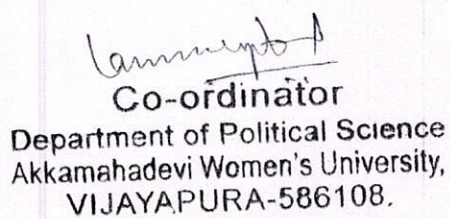 Co-ordinator
Department of Political Science
Akkamahadevi Women's University,
VIJAYAPURA-586108.